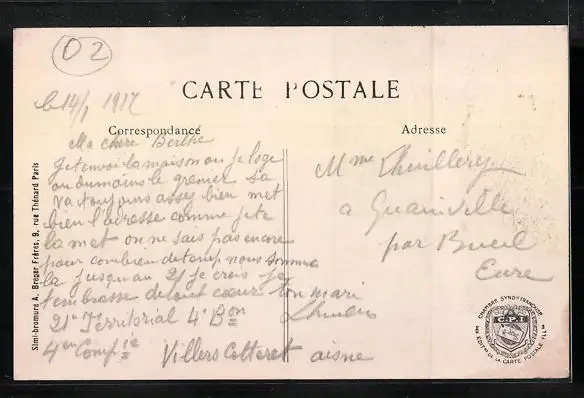 02
le 14/1 1917
CARTE POSTALE
Correspondance
Adresse
Ma chere Berthe
je tenvoi la maison ou je loge
ou du mains le grenier sa
va toujours assez bien met
bien l'adresse comme je te
la met on ne sais pas encore
pour combien de temp nous somme
la jusquau 21 je crois je
tembrasse de tout cœur ton mari
21e Territorial 4e Bon
4em Compie Villers Cotteret aisne
Mme Thuillery
a Guainville
par Bueil
Eure
Simi-bromure A. Breger Frères, 9, rue Thénard Paris
CHAMBRE SYNDle FRANÇAISE
C.P.I
DES EDITrs DE LA CARTE POSTALE ILLée